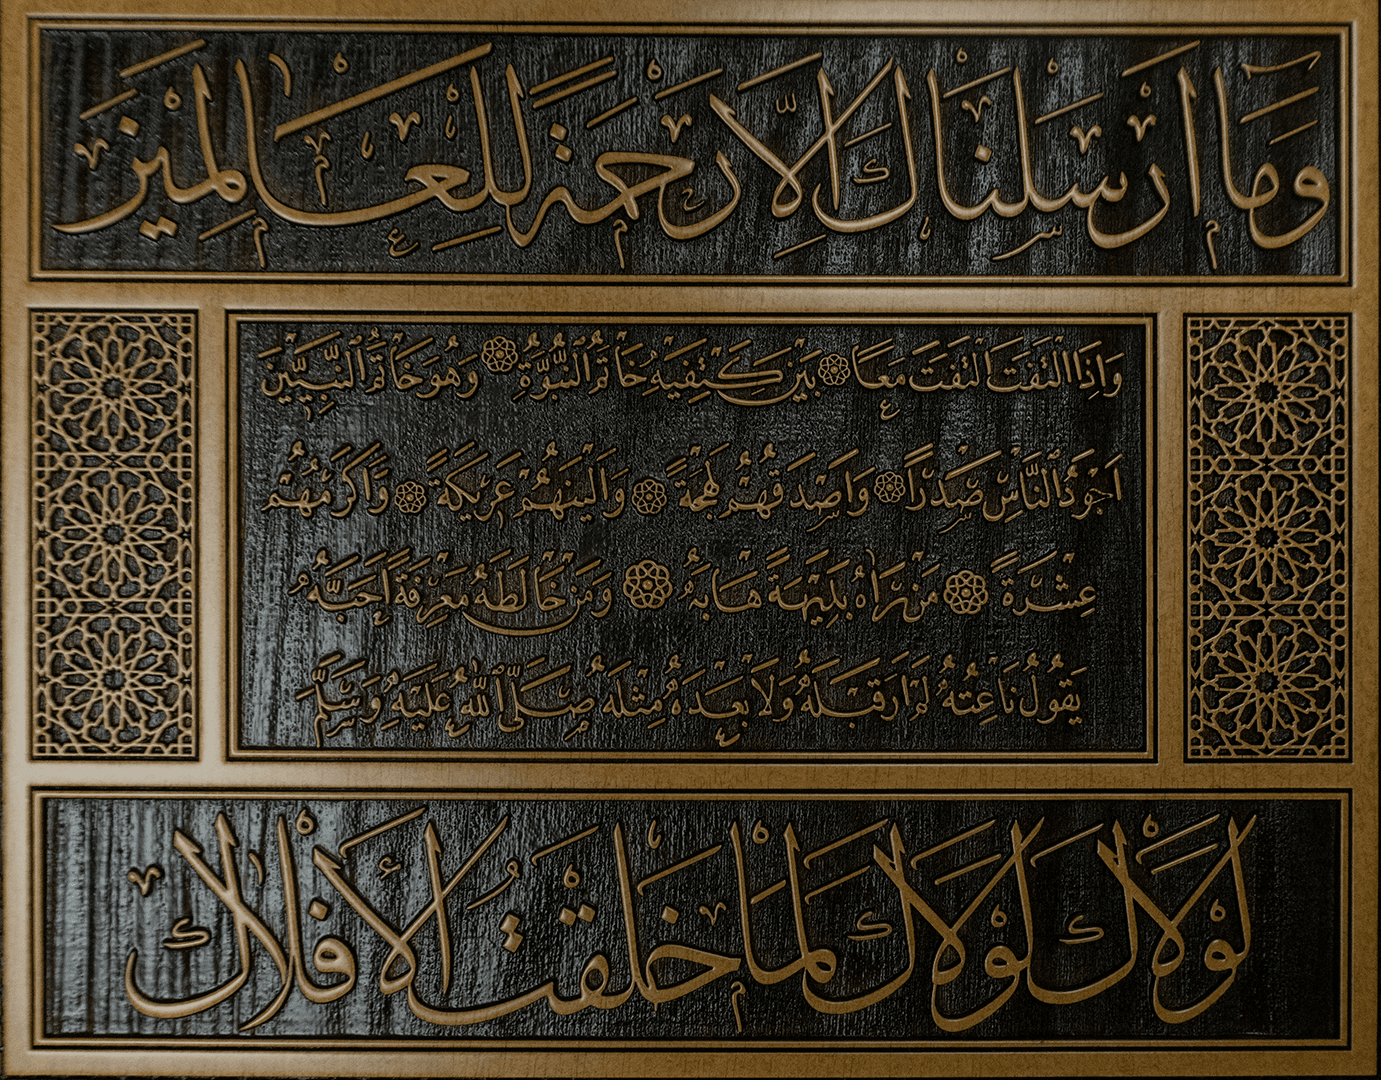 وَمَا أَرْسَلْنَاكَ إِلَّا رَحْمَةً لِلْعَالَمِينَ
وَإِذَا الْتَفَتَ الْتَفَتَ مَعًا بَيْنَ كَتِفَيْهِ خَاتَمُ النُّبُوَّةِ وَهُوَ خَاتَمُ النَّبِيِّينَ
أَجْوَدُ النَّاسِ صَدْرًا وَأَصْدَقُهُمْ لَهْجَةً وَأَلْيَنُهُمْ عَرِيكَةً وَأَكْرَمُهُمْ
عِشْرَةً مَنْ رَآهُ بَدِيهَةً هَابَهُ وَمَنْ خَالَطَهُ مَعْرِفَةً أَحَبَّهُ
يَقُولُ نَاعِتُهُ لَمْ أَرَ قَبْلَهُ وَلَا بَعْدَهُ مِثْلَهُ صَلَّى اللهُ عَلَيْهِ وَسَلَّمَ
لَوْلَاكَ لَوْلَاكَ لَمَا خَلَقْتُ الْأَفْلَاكَ